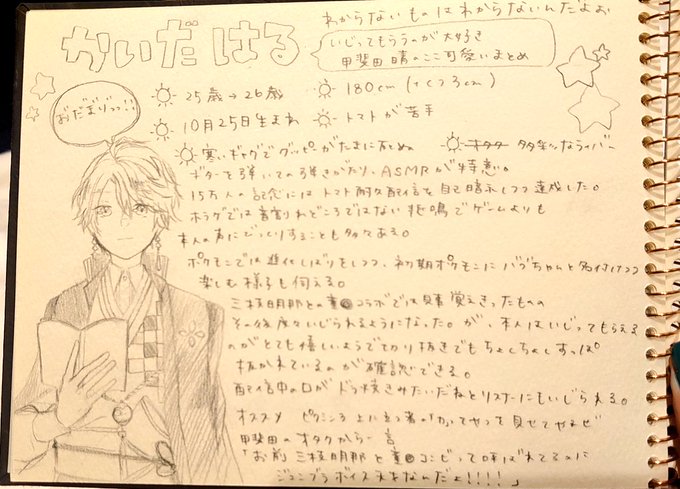 わからないものはわからないんだよぉ
かいだ はる
いじってもらうのが大好き
甲斐田晴のここ可愛いまとめ
おだまりっっ!!
25歳→26歳
180cm (+くつ3cm)
10月25日生まれ
トマトが苦手
寒いギャグでグッピーがたまに死ぬ
オタク 多彩なライバー
ギターを弾いての弾きがたり、ASMRが特意。
15万人の記念にはトマト耐久配信を自己暗示しつつ達成した。
ホラゲでは音割れどころではない悲鳴でゲームよりも
本人の声にびっくりすることも多々ある。
ポケモンでは進化しばりをしつつ、初期ポケモンにバブちゃんと名付けつつ
楽しむ様子も伺える。
三枝明那との コラボでは 覚えきったものの
その後度々いじられるようになった。が、本人はいじってもらえる
のがとても嬉しいようで切り抜きでもちょくちょくすっぱ
抜かれているのが確認できる。
配信中の口がドラ焼きみたいだねとリスナーにもいじられる。
オススメ ピクミン3 上に立つ者の「かってやって見せてやるぜ
甲斐田のオタクから一言
「お前 三枝明那と コンビって呼ばれてるのに
ボイス んだよ!!!!」